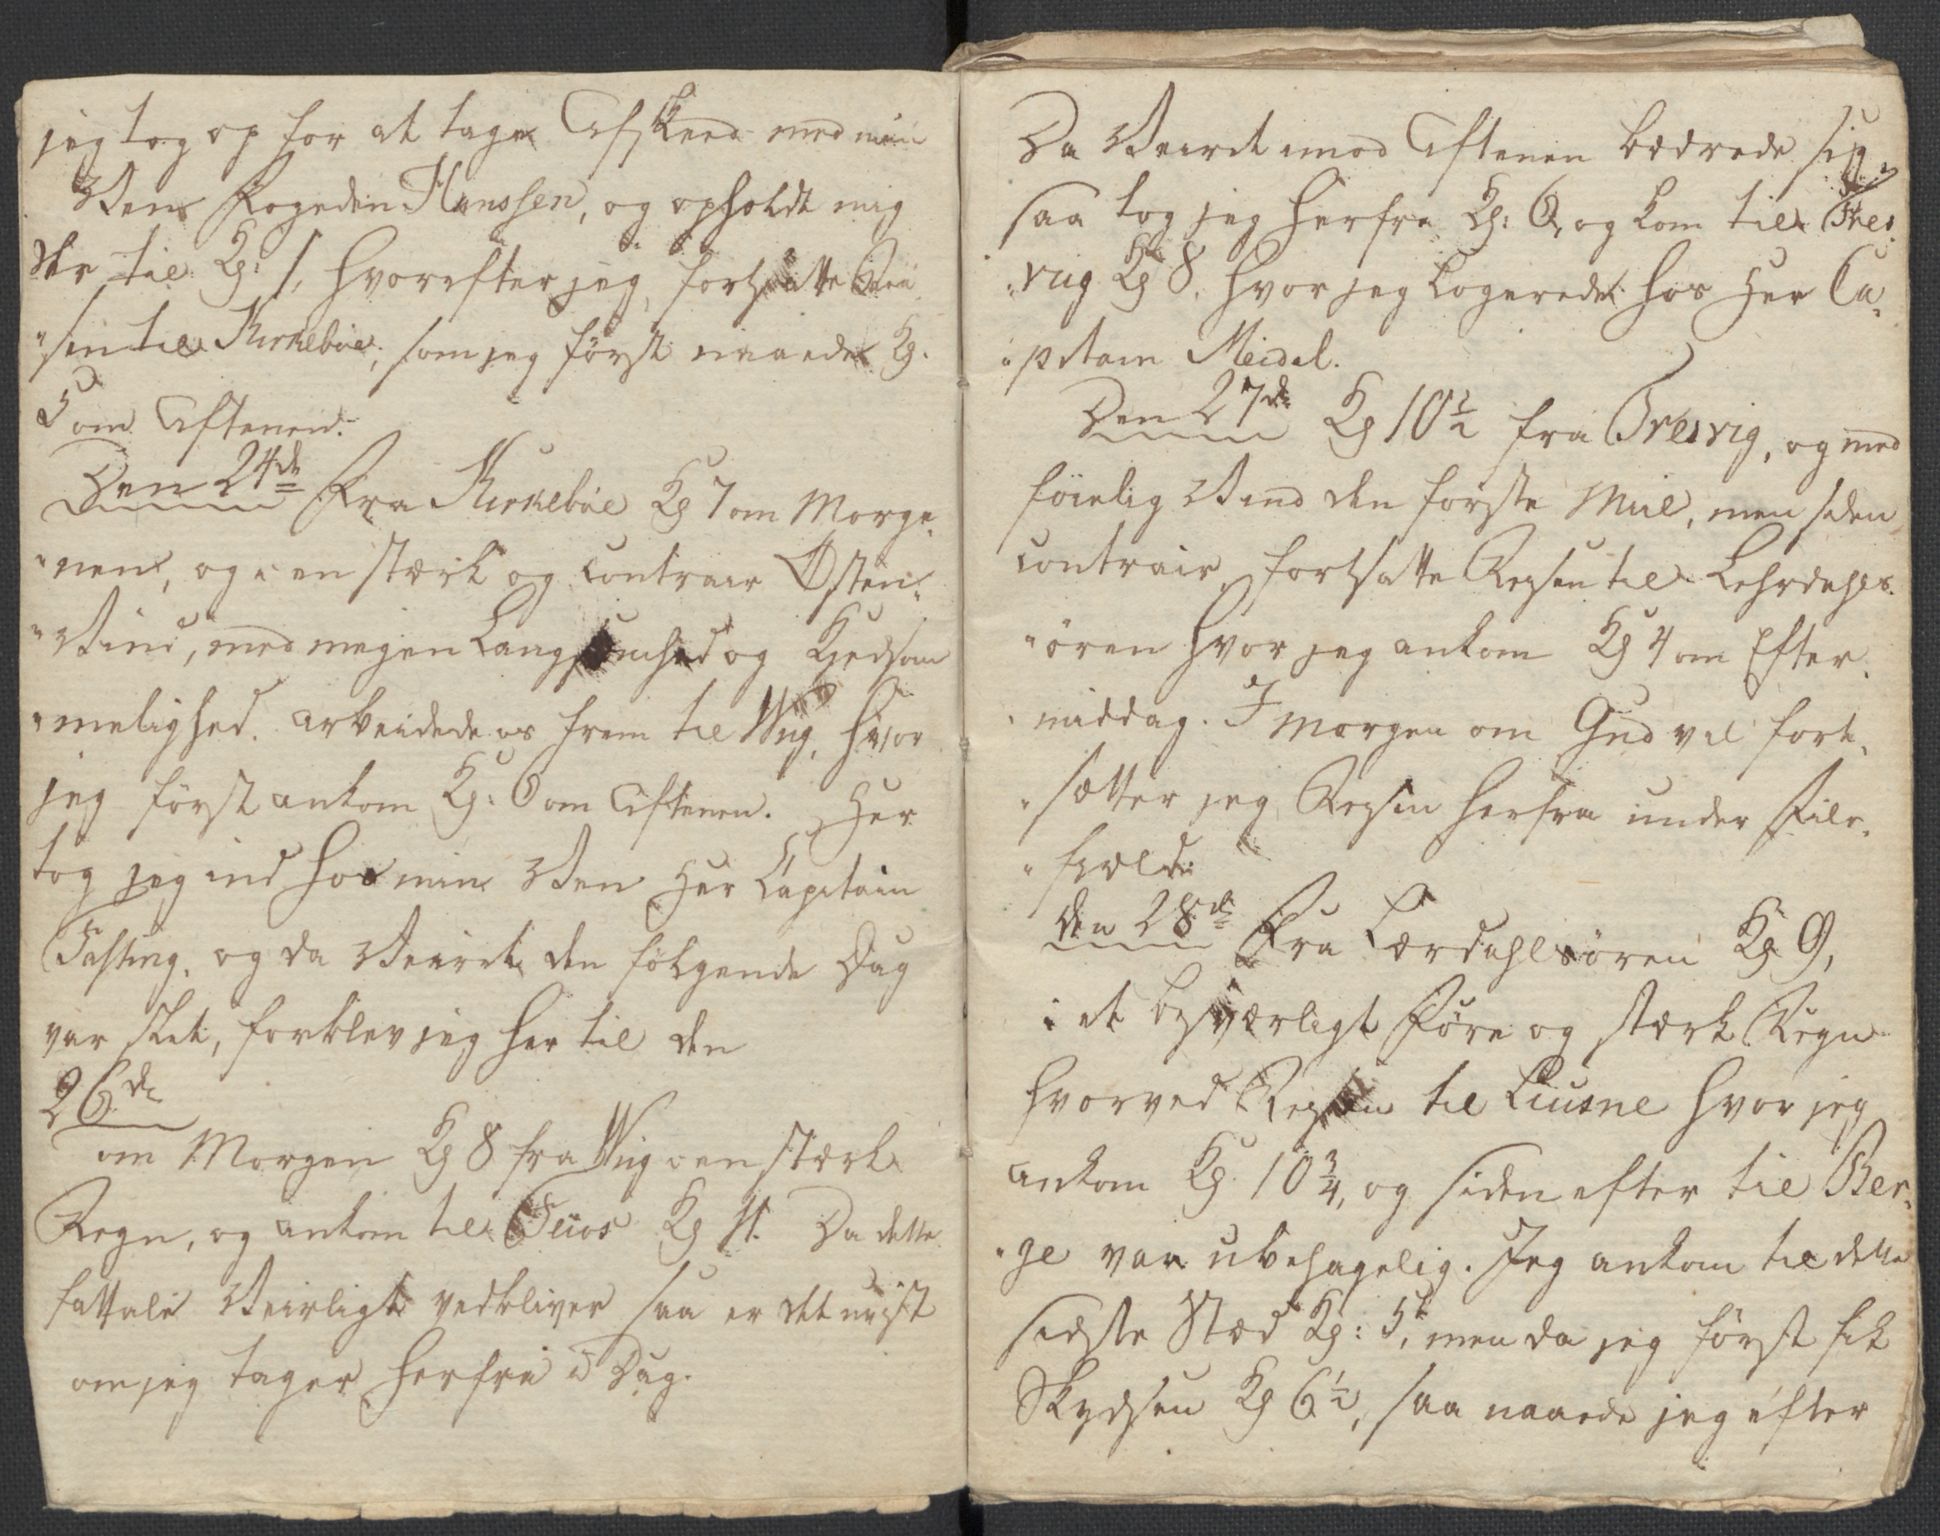 jeg tog op for at tage Afskeed med min
Ven Fogeden Hanssen, og opholdt mig
der til Kl: 1, hvorefter jeg fortsatte Rei
"sen til Kirkeböe, som jeg først naaede Kl.
5 om Aftenen.
Den 24de Fra Kirkeböe Kl 7 om Morge„
"nen, og i en stærk og contrair Østen„
"Vind, med megen Langsomhed og Kjedsom
"melighed arbeidede os frem til Wiig, hvor
jeg först ankom Kl: 6 om Aftenen. Her
tog jeg ind hos min Ven Herr Capitain
Fasting, og da Veiret den følgende Dag
var slet, forblev jeg her til den
26de
om Morgen Kl 8 fra Wiig i en stærk
Regn, og ankom til Feiios Kl 11. Da dette
fattale Veirligt vedbliver saa er det uvist
om jeg tager herfra i Dag.
Da Veiret imod Aftenen bedrede sig,
saa tog jeg herfra Kl: 6, og kom til Fres„
"vig Kl 8, hvor jeg Logerede hos Herr Ca„
"pitain Meidel.
Den 27de Kl 10½ fra Fresvig, og med
föielig Vind den første Miil, men siden
contrair fortsatte Reisen til Lehrdahls„
"ören hvor jeg ankom Kl 4 om Efter„
"middag. I Morgen om Gud vil fort„
"sætter jeg Reisen herfra under File„
"field.
den 28de Fra Lærdahlsören Kl 9,
i et besværligt Føre og stærk Regn
hvorved Reisen til Liusne hvor jeg
ankom Kl. 10¾, og siden efter til Ber„
"ge var ubehagelig. Jeg ankom til dette
sidste Stæd Kl: 5, men da jeg först fik
Skydsen Kl 6½, saa naaede jeg efter